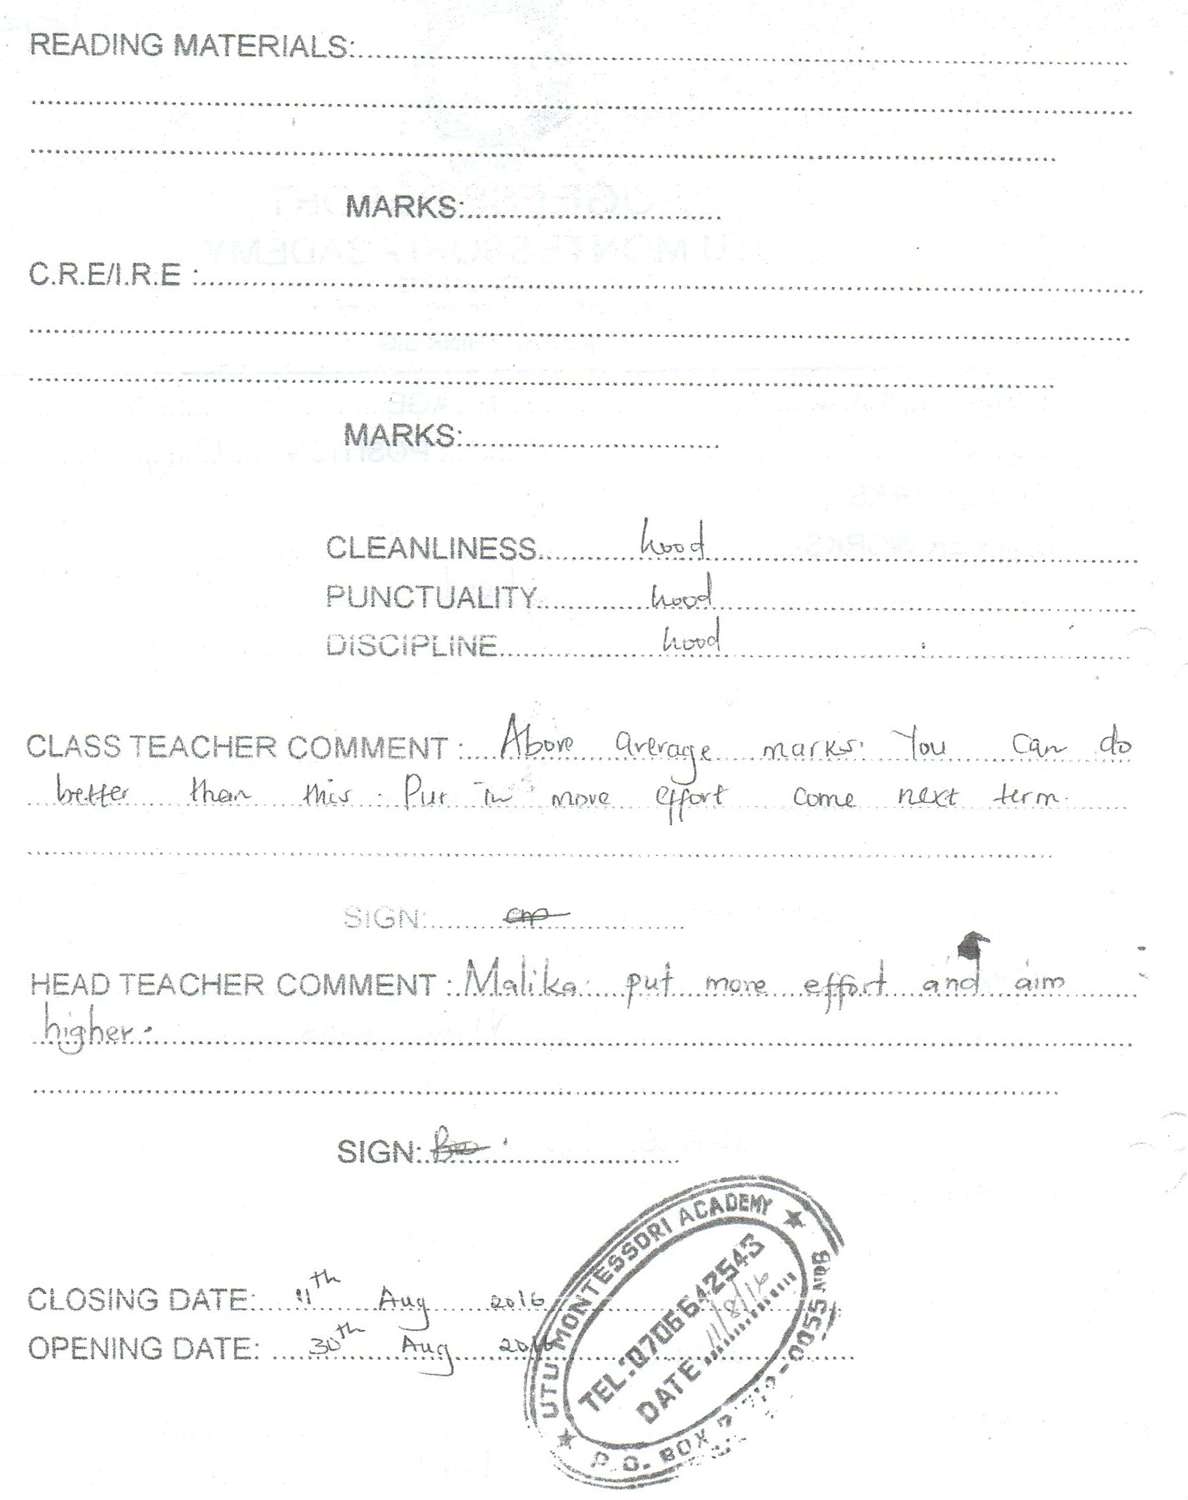 READING MATERIALS:
MARKS:
C.R.E/I.R.E :
MARKS:
CLEANLINESS Good
PUNCTUALITY Good
DISCIPLINE Good
CLASS TEACHER COMMENT : Above average marks. You can do
better than this. Put in more effort come next term.
SIGN:
HEAD TEACHER COMMENT : Malika: put more effort and aim
higher.
SIGN:
CLOSING DATE: 11th Aug 2016
OPENING DATE: 30th Aug 2016
UTU MONTESSORI ACADEMY
TEL:0706642543
DATE 11/8/16
P.O. BOX